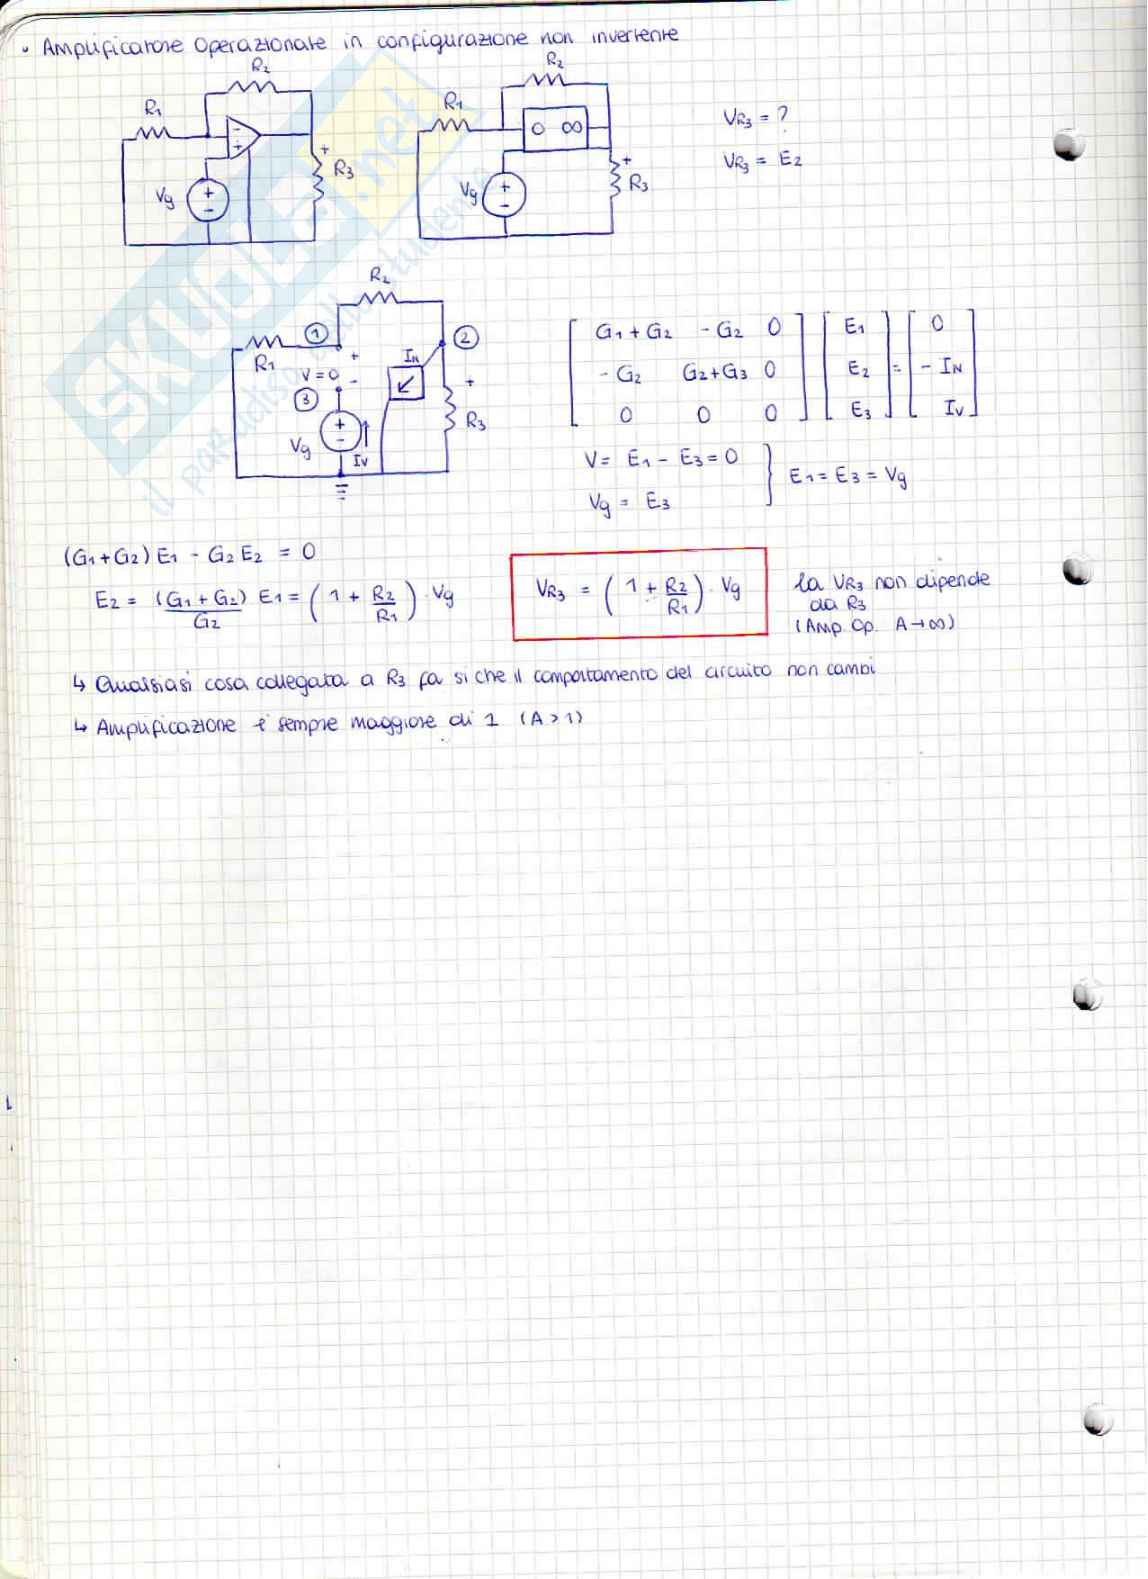 • Amplificatore Operazionale in configurazione non invertente
R₂
R₁
- +
Vg
+
-
+
R₃
R₂
R₁
0 ∞
Vg
+
-
+
R₃
VR₃ = ?
VR₃ = E₂
SKUOLA.net
R₂
①
②
R₁
+
V=0 -
③
IN
+
R₃
Vg
+
-
IV
[ G₁+G₂ -G₂ 0 ] [ E₁ ] [ 0 ]
[ -G₂ G₂+G₃ 0 ] [ E₂ ] = [ -IN ]
[ 0 0 0 ] [ E₃ ] [ IV ]
V = E₁ - E₃ = 0
Vg = E₃
} E₁ = E₃ = Vg
(G₁+G₂) E₁ - G₂ E₂ = 0
E₂ = (G₁+G₂)/G₂ E₁ = (1 + R₂/R₁) · Vg
VR₃ = (1 + R₂/R₁) · Vg
la VR₃ non dipende
da R₃
(Amp. Op. A→∞)
↳ Qualsiasi cosa collegata a R₃ fa si che il comportamento del circuito non cambi
↳ Amplificazione è sempre maggiore di 1 (A>1)